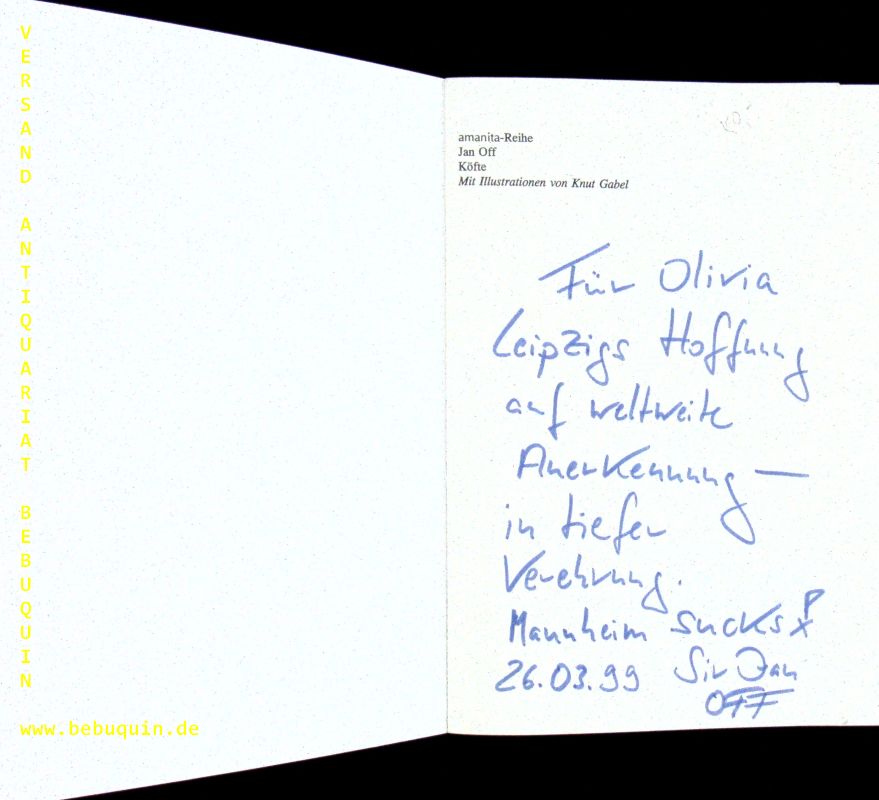 VERSAND ANTIQUARIAT BEBUQUIN
www.bebuquin.de
amanita-Reihe
Jan Off
Köfte
Mit Illustrationen von Knut Gabel
Für Olivia
Leipzigs Hoffnung
auf weltweite
Anerkennung —
in tiefer
Verehrung.
Mannheim sucks!
26.03.99 Sir Jan
OFF